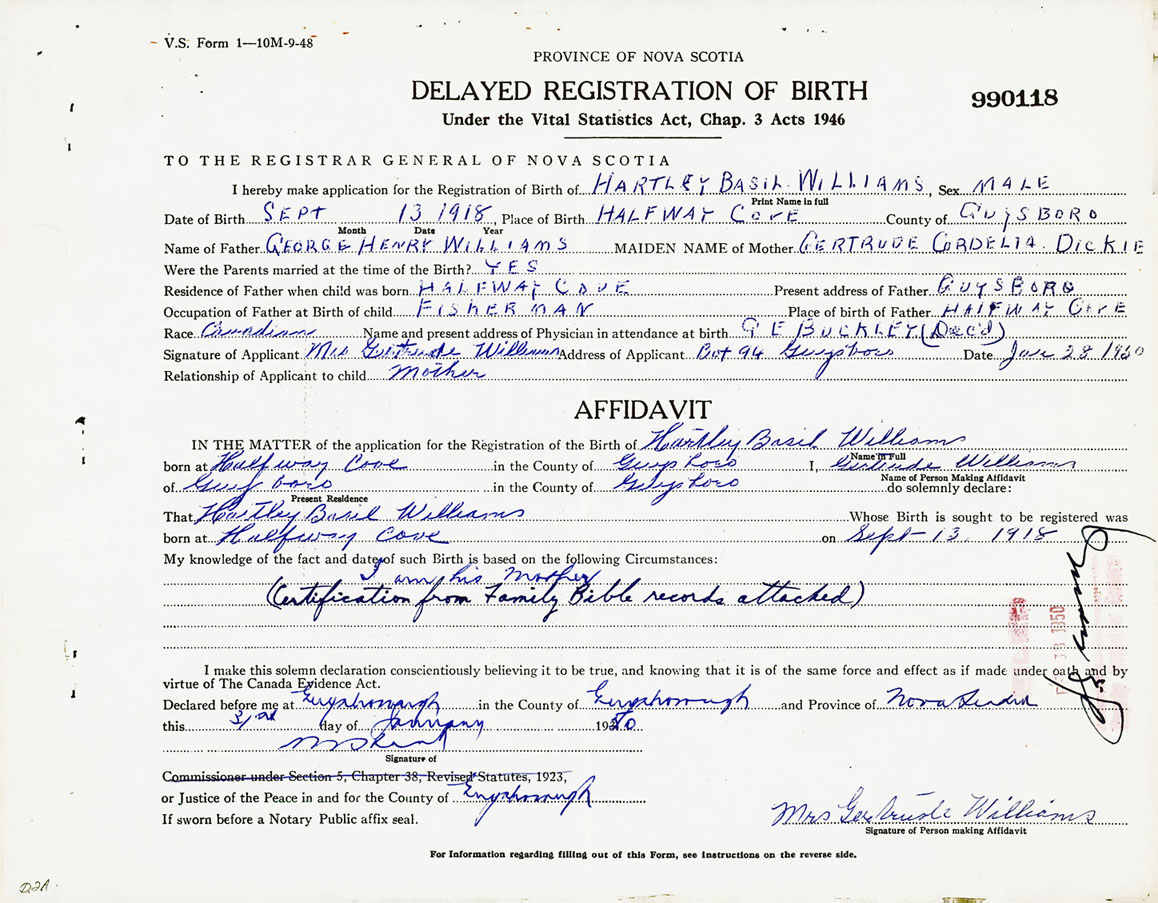 V.S. Form 1—10M-9-48
PROVINCE OF NOVA SCOTIA
DELAYED REGISTRATION OF BIRTH
990118
Under the Vital Statistics Act, Chap. 3 Acts 1946
TO THE REGISTRAR GENERAL OF NOVA SCOTIA
I hereby make application for the Registration of Birth of HARTLEY BASIL WILLIAMS, Sex MALE
Print Name in full
Date of Birth SEPT 13 1918, Place of Birth HALFWAY COVE County of GUYSBORO
Month Date Year
Name of Father GEORGE HENRY WILLIAMS MAIDEN NAME of Mother GERTRUDE CORDELIA DICKIE
Were the Parents married at the time of the Birth? YES
Residence of Father when child was born HALFWAY COVE Present address of Father GUYSBORO
Occupation of Father at Birth of child FISHERMAN Place of birth of Father HALFWAY COVE
Race Canadian Name and present address of Physician in attendance at birth G E BUCKLEY (Dec'd)
Signature of Applicant Mrs Gertrude Williams Address of Applicant Box 94 Guysboro Date Jan 28 1950
Relationship of Applicant to child Mother
AFFIDAVIT
IN THE MATTER of the application for the Registration of the Birth of Hartley Basil Williams
Name in Full
born at Halfway Cove in the County of Guysboro I, Gertrude Williams
Name of Person Making Affidavit
of Guysboro in the County of Guysboro do solemnly declare:
Present Residence
That Hartley Basil Williams Whose Birth is sought to be registered was
born at Halfway Cove on Sept 13. 1918
My knowledge of the fact and date of such Birth is based on the following Circumstances:
I am his Mother
(Certification from Family Bible records attached)
I make this solemn declaration conscientiously believing it to be true, and knowing that it is of the same force and effect as if made under oath and by
virtue of The Canada Evidence Act.
Declared before me at Guysborough in the County of Guysborough and Province of Nova Scotia
this 31st day of January 1950
Signature of
Commissioner under Section 5, Chapter 38, Revised Statutes, 1923,
or Justice of the Peace in and for the County of Guysborough
If sworn before a Notary Public affix seal.
Mrs Gertrude Williams
Signature of Person making Affidavit
For Information regarding filling out of this Form, see instructions on the reverse side.